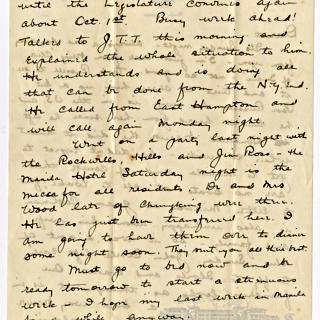 until the Legislature convenes again
about Oct. 1st Busy work ahead!
Talked to J.T.T. this morning and
explained the whole situation to him.
He understands and is doing all
that can be done from the N.Y. end.
He called from East Hampton and
will call again Monday night.
Went on a party last night with
the Rockwells, Hills and Jim Ross - the
Manila Hotel Saturday night is the
mecca for all residents. Dr and Mrs
Wood late of Chungking were there.
He has just been transferred here. I
am going to have them over to dinner
some night soon. They sent you all their best.
Must go to bed now and be
ready tomorrow to start a strenuous
work - I hope my last work in Manila
for a while anyway.